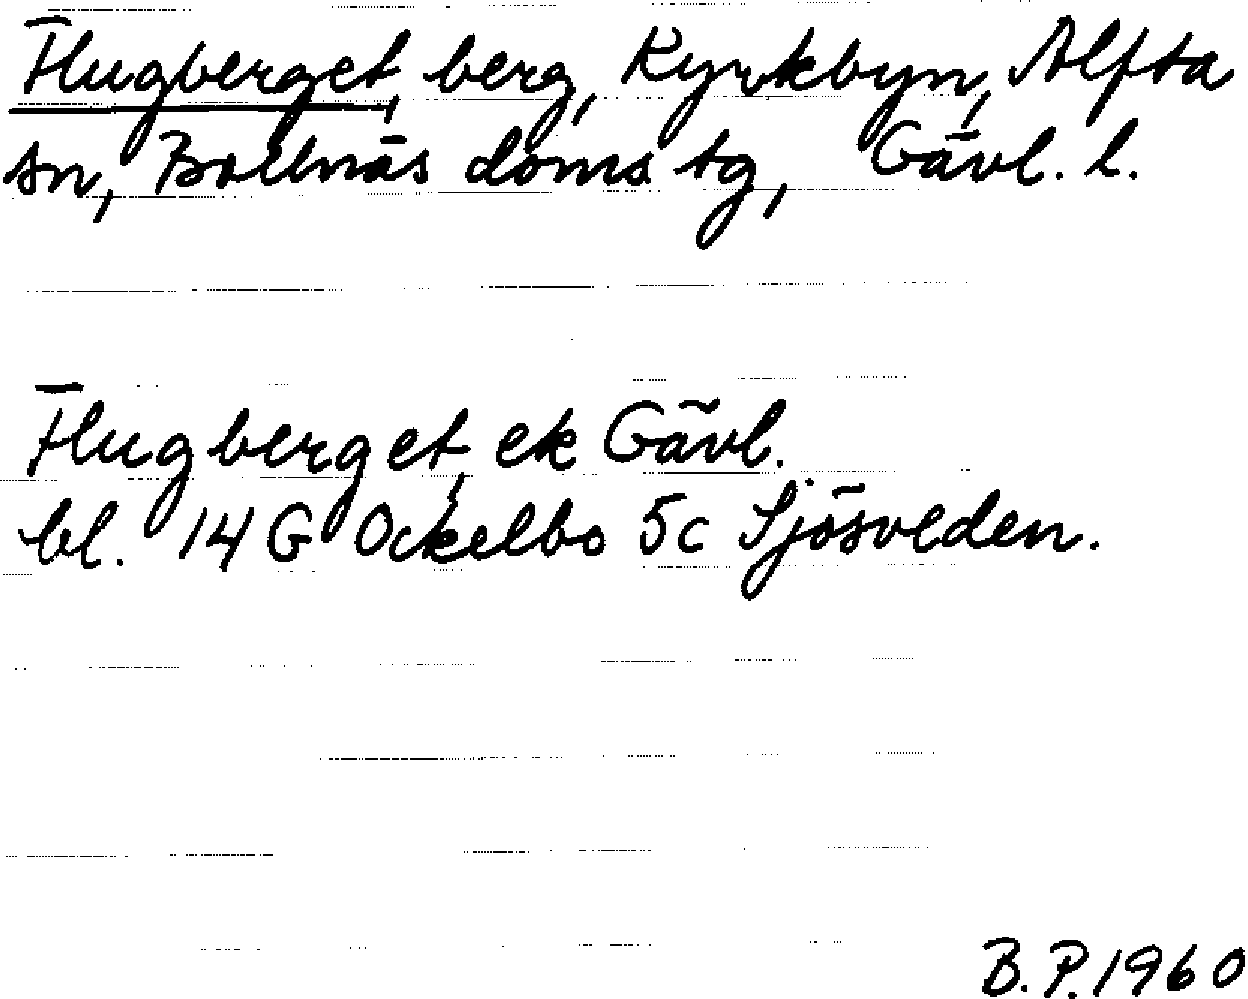 Flugberget, berg, Kyrkbyn, Alfta
sn, Bollnäs doms tg, Gävl. l.
Flugberget, ek Gävl.
bl. 14 G Ockelbo 5c Sjösveden.
B.P. 1960